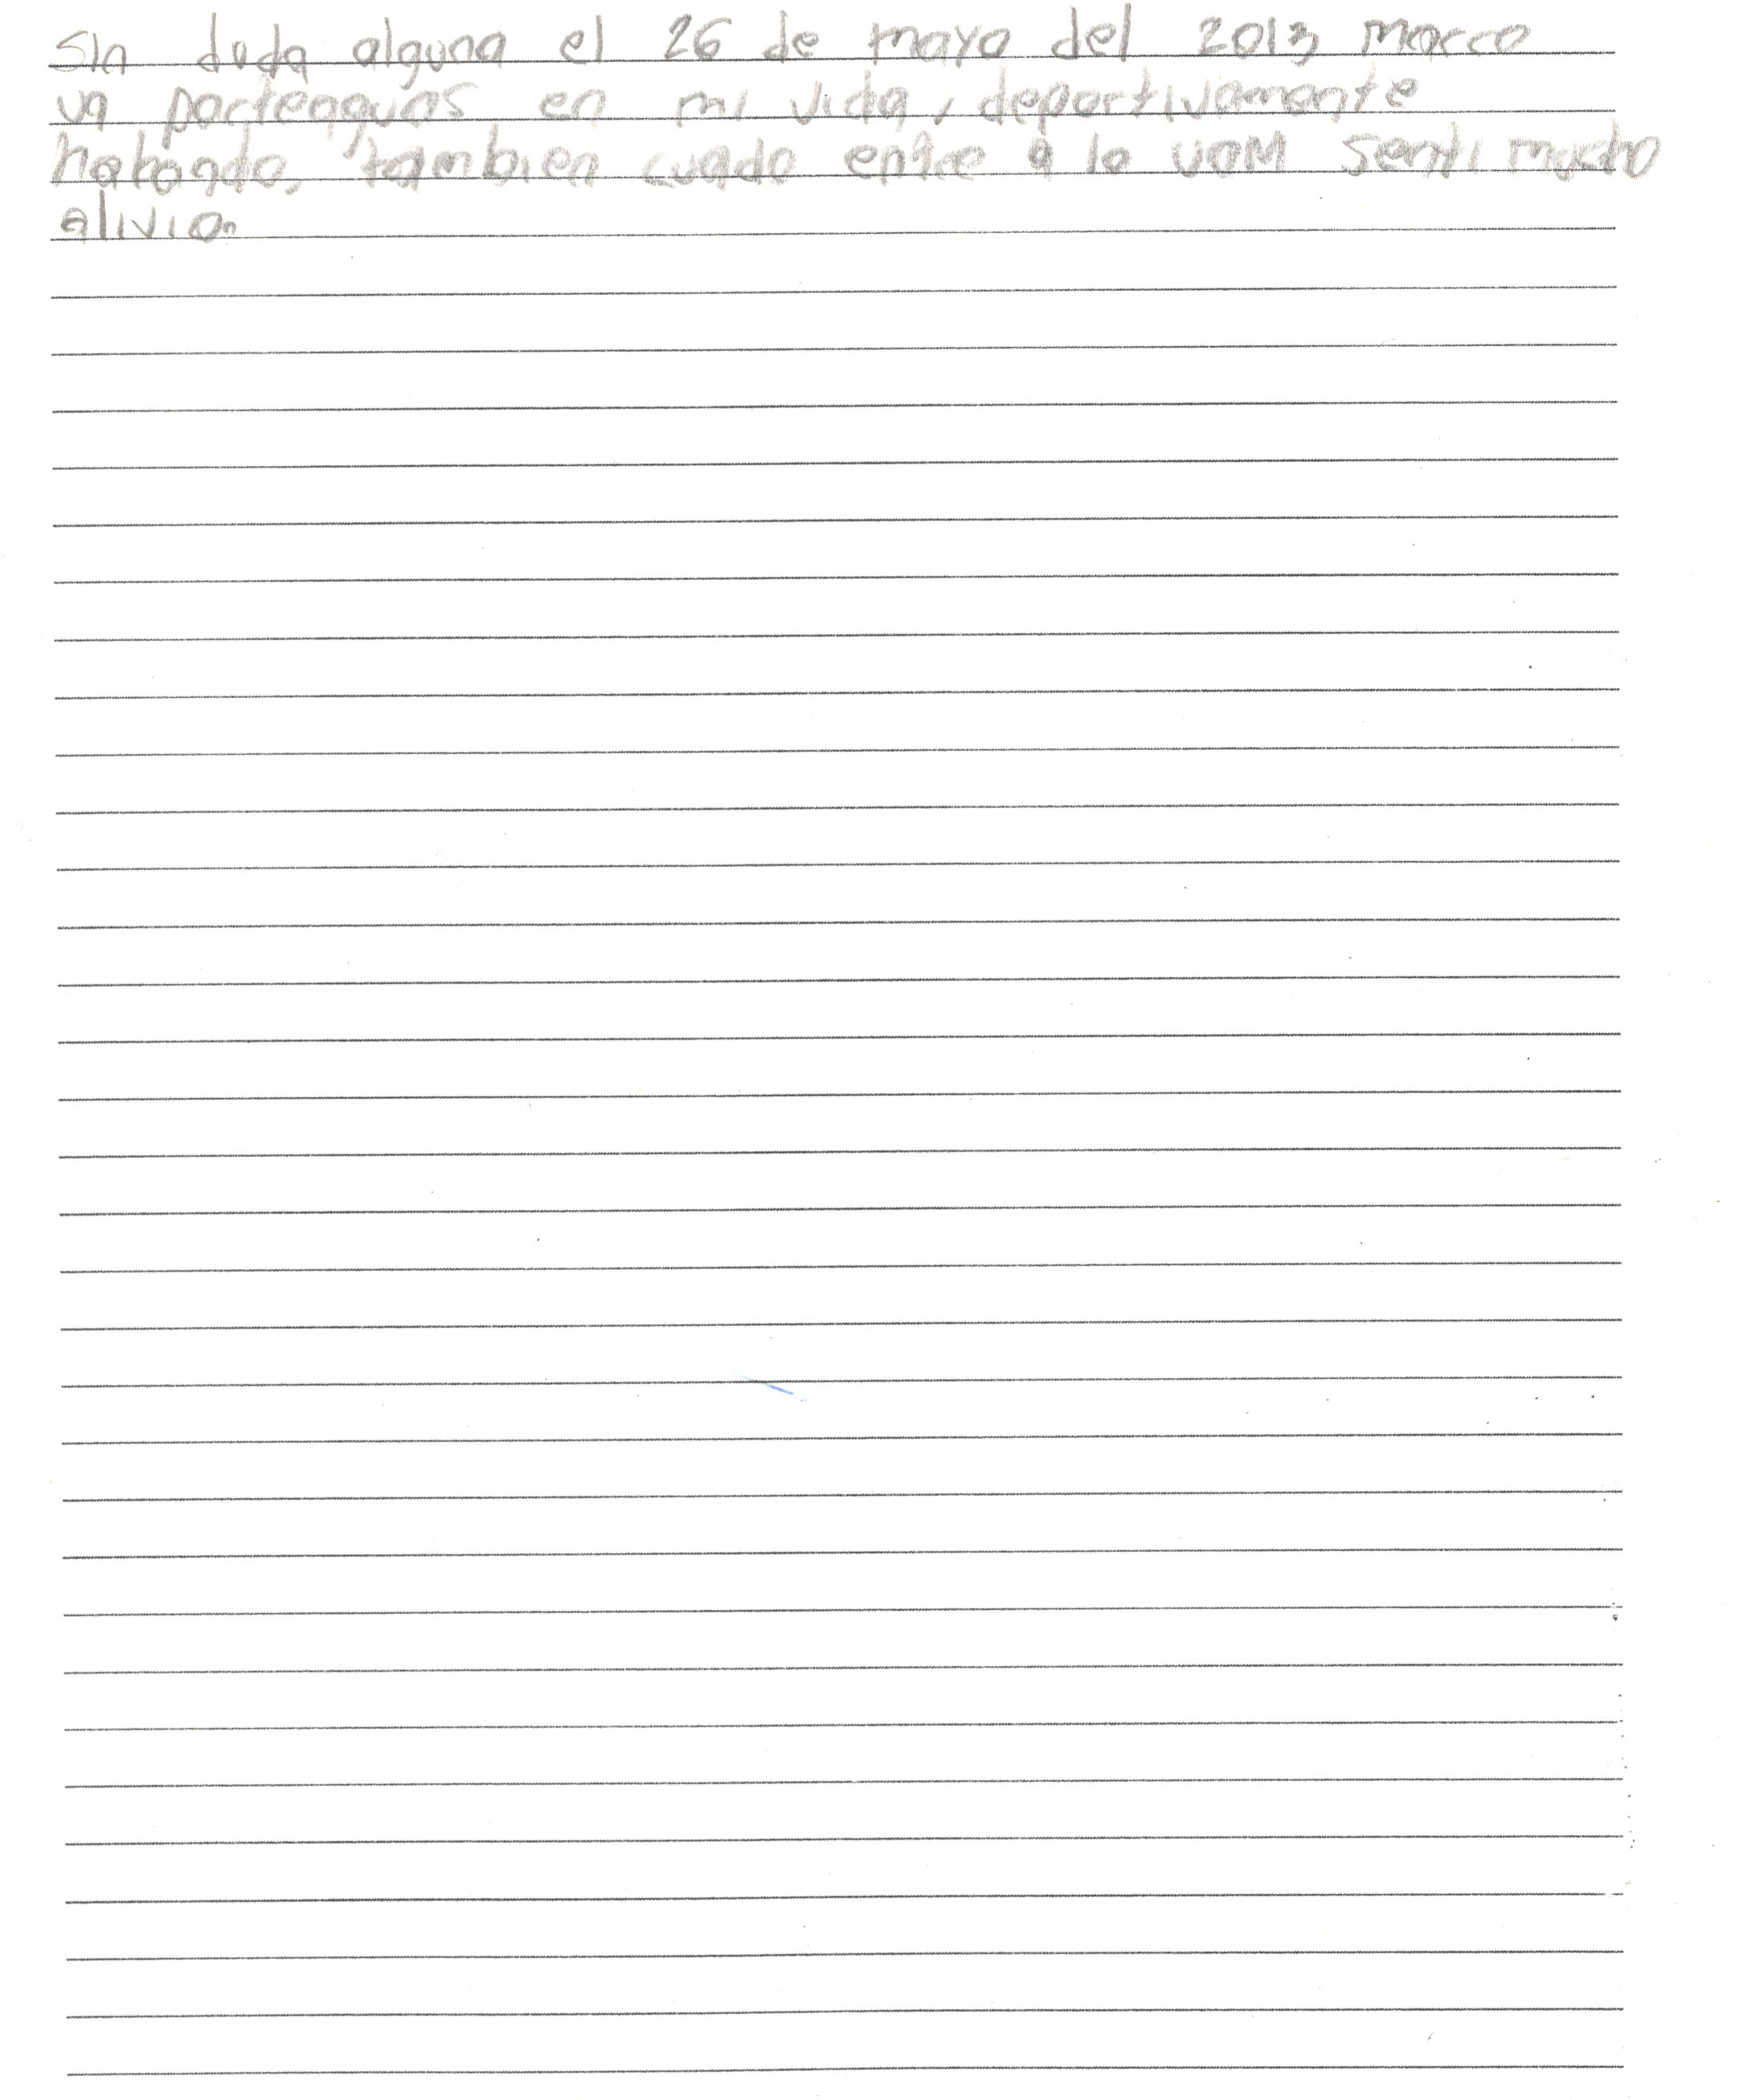 Sin duda alguna el 26 de mayo del 2013 marco
un parteaguas en mi vida, deportivamente
habando, tambien cuado entre a la UAM senti mucho
alivio.